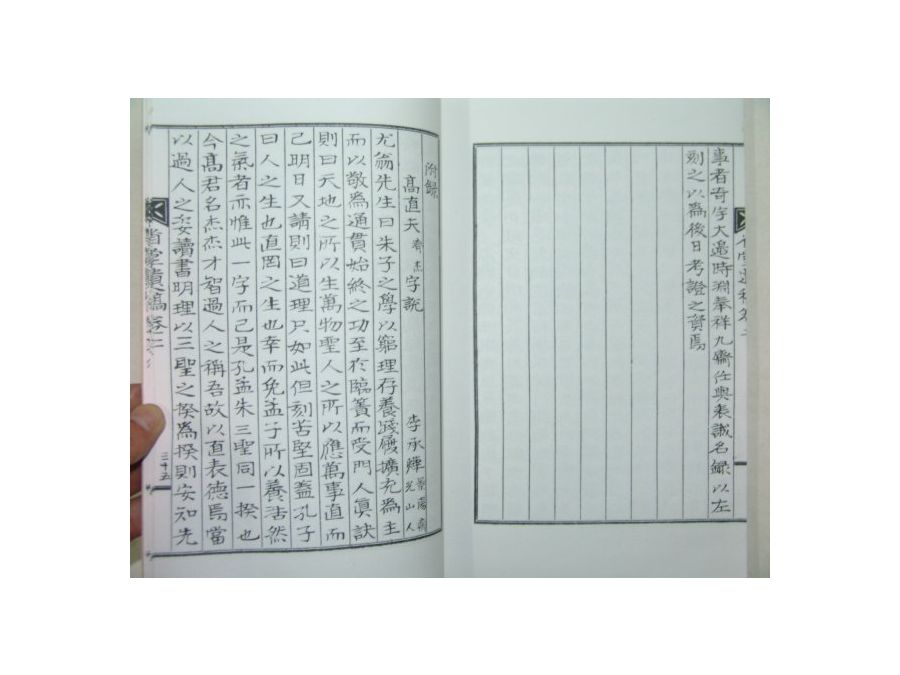 事者奇字大邉時淵奉祥九齋任與表誠名錄以左
刻之以為後日考證之資焉
附錄
高直天齊杰字說
李承燁光山人
尤翁先生曰朱子之學以窮理存養踐履擴充為主
而以敬為通貫始終之功至於臨簀而受門人眞訣
則曰天地之所以生萬物聖人之所以應萬事直而
已明日又請則曰道理只如此但刻苦堅固盖孔子
曰人之生也直罔之生也幸而免孟子所以養浩然
之氣者亦惟此一字而已是孔孟朱三聖同一揆也
今高君名杰杰才智過人之稱吾故以直表德焉當
以過人之姿讀書明理以三聖之揆為揆則安知先
遺稿卷之二
三十五